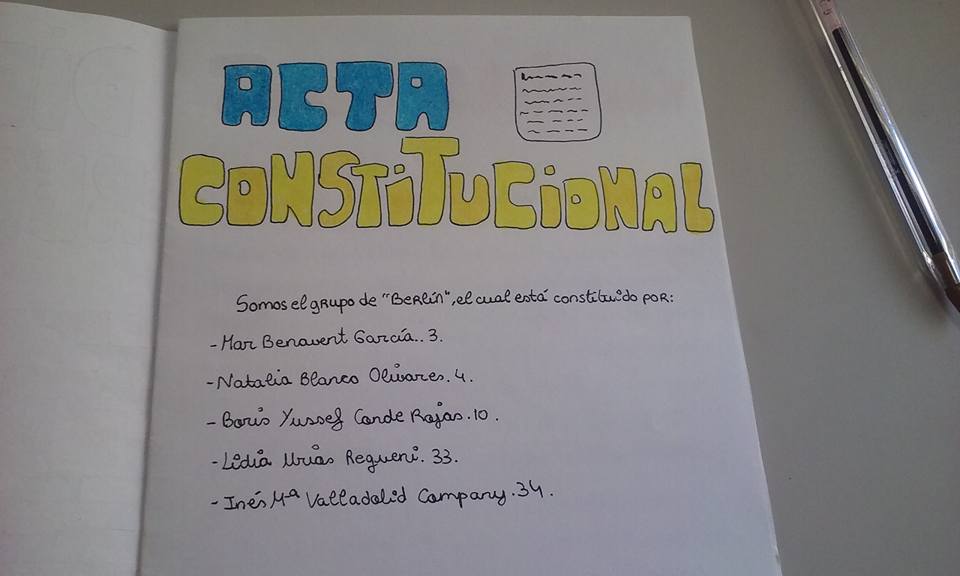 ACTA
CONSTiTUCiONAL
Somos el grupo de "Berlín", el cual está constituido por:
- Mar Benavent García.. 3.
- Natalia Blanco Olivares. 4.
- Boris Yussef Conde Rojas. 10.
- Lidia Urias Regueni. 33.
- Inés Mª Valladolid Company. 34.